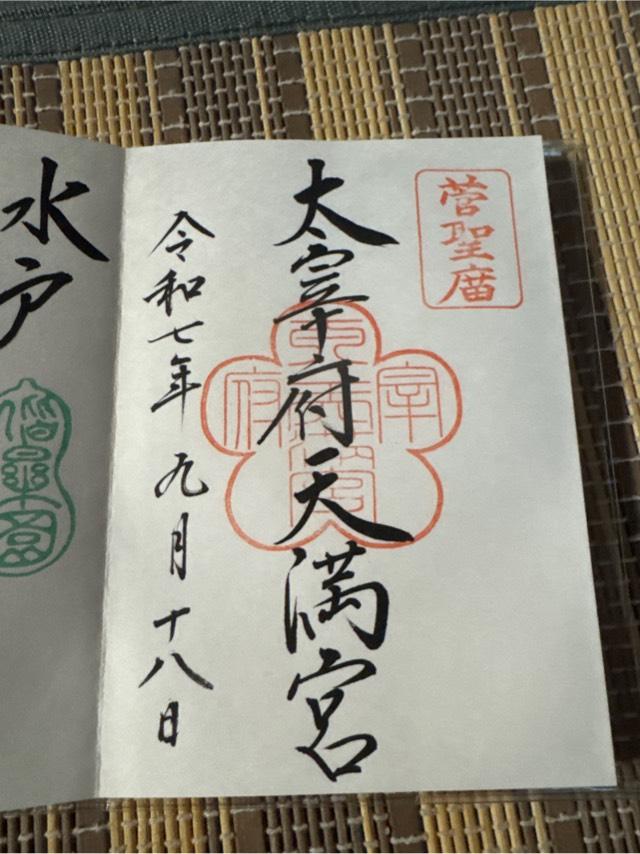 菅聖庿
太宰府天満宮
宰
府
令和七年 九月十八日
水戸